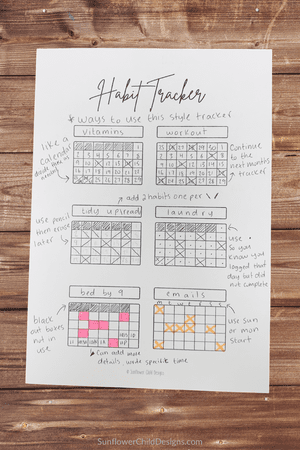 Habit Tracker
* ways to use this style tracker
vitamins
workout
like a
calendar
Continue
to the
next months
tracker
add 2 habits one per
tidy upstead
laundry
use pencil
then erase
later
use •
so you
know you
logged that
day but did
not complete
bed by 9
emails
m t w t f s s
black
out boxes
not in
use
use sun
or mon
start
Can add more
details, wrote specific time
SunflowerChildDesigns.com